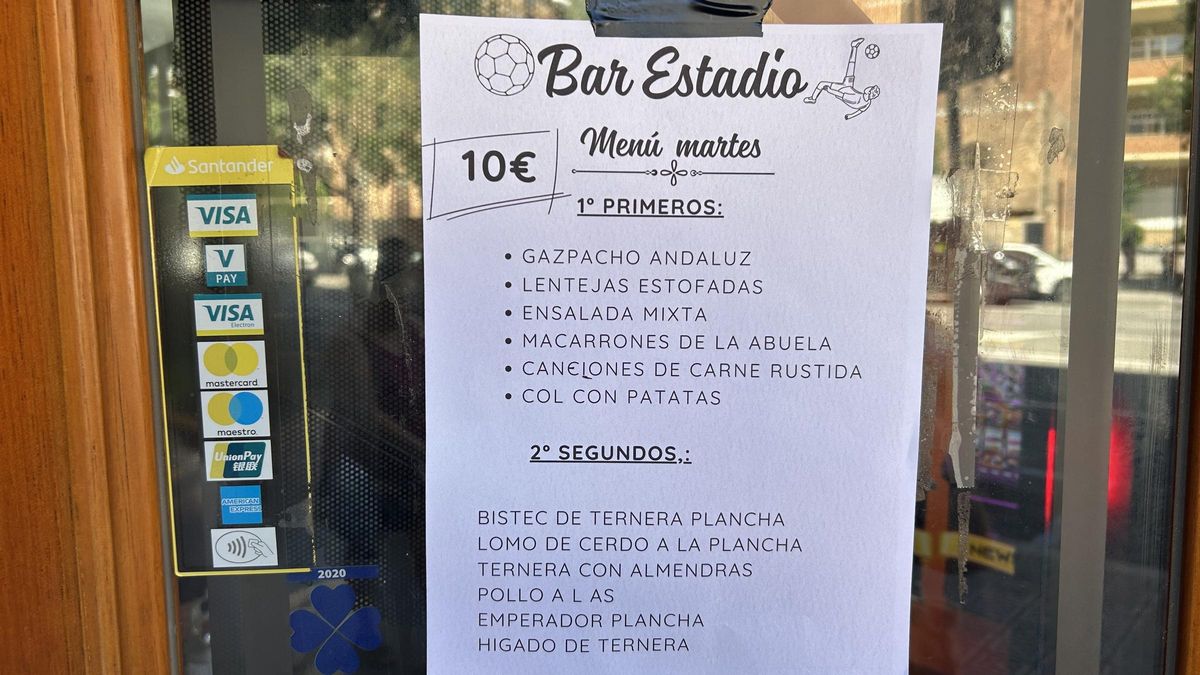 Bar Estadio
Menú martes
10€
1º PRIMEROS:
• GAZPACHO ANDALUZ
• LENTEJAS ESTOFADAS
• ENSALADA MIXTA
• MACARRONES DE LA ABUELA
• CANELONES DE CARNE RUSTIDA
• COL CON PATATAS
2º SEGUNDOS,:
BISTEC DE TERNERA PLANCHA
LOMO DE CERDO A LA PLANCHA
TERNERA CON ALMENDRAS
POLLO A L AS
EMPERADOR PLANCHA
HIGADO DE TERNERA
Santander
VISA
V
PAY
VISA
Electron
mastercard
maestro
UnionPay
银联
AMERICAN
EXPRESS
2020
NEW